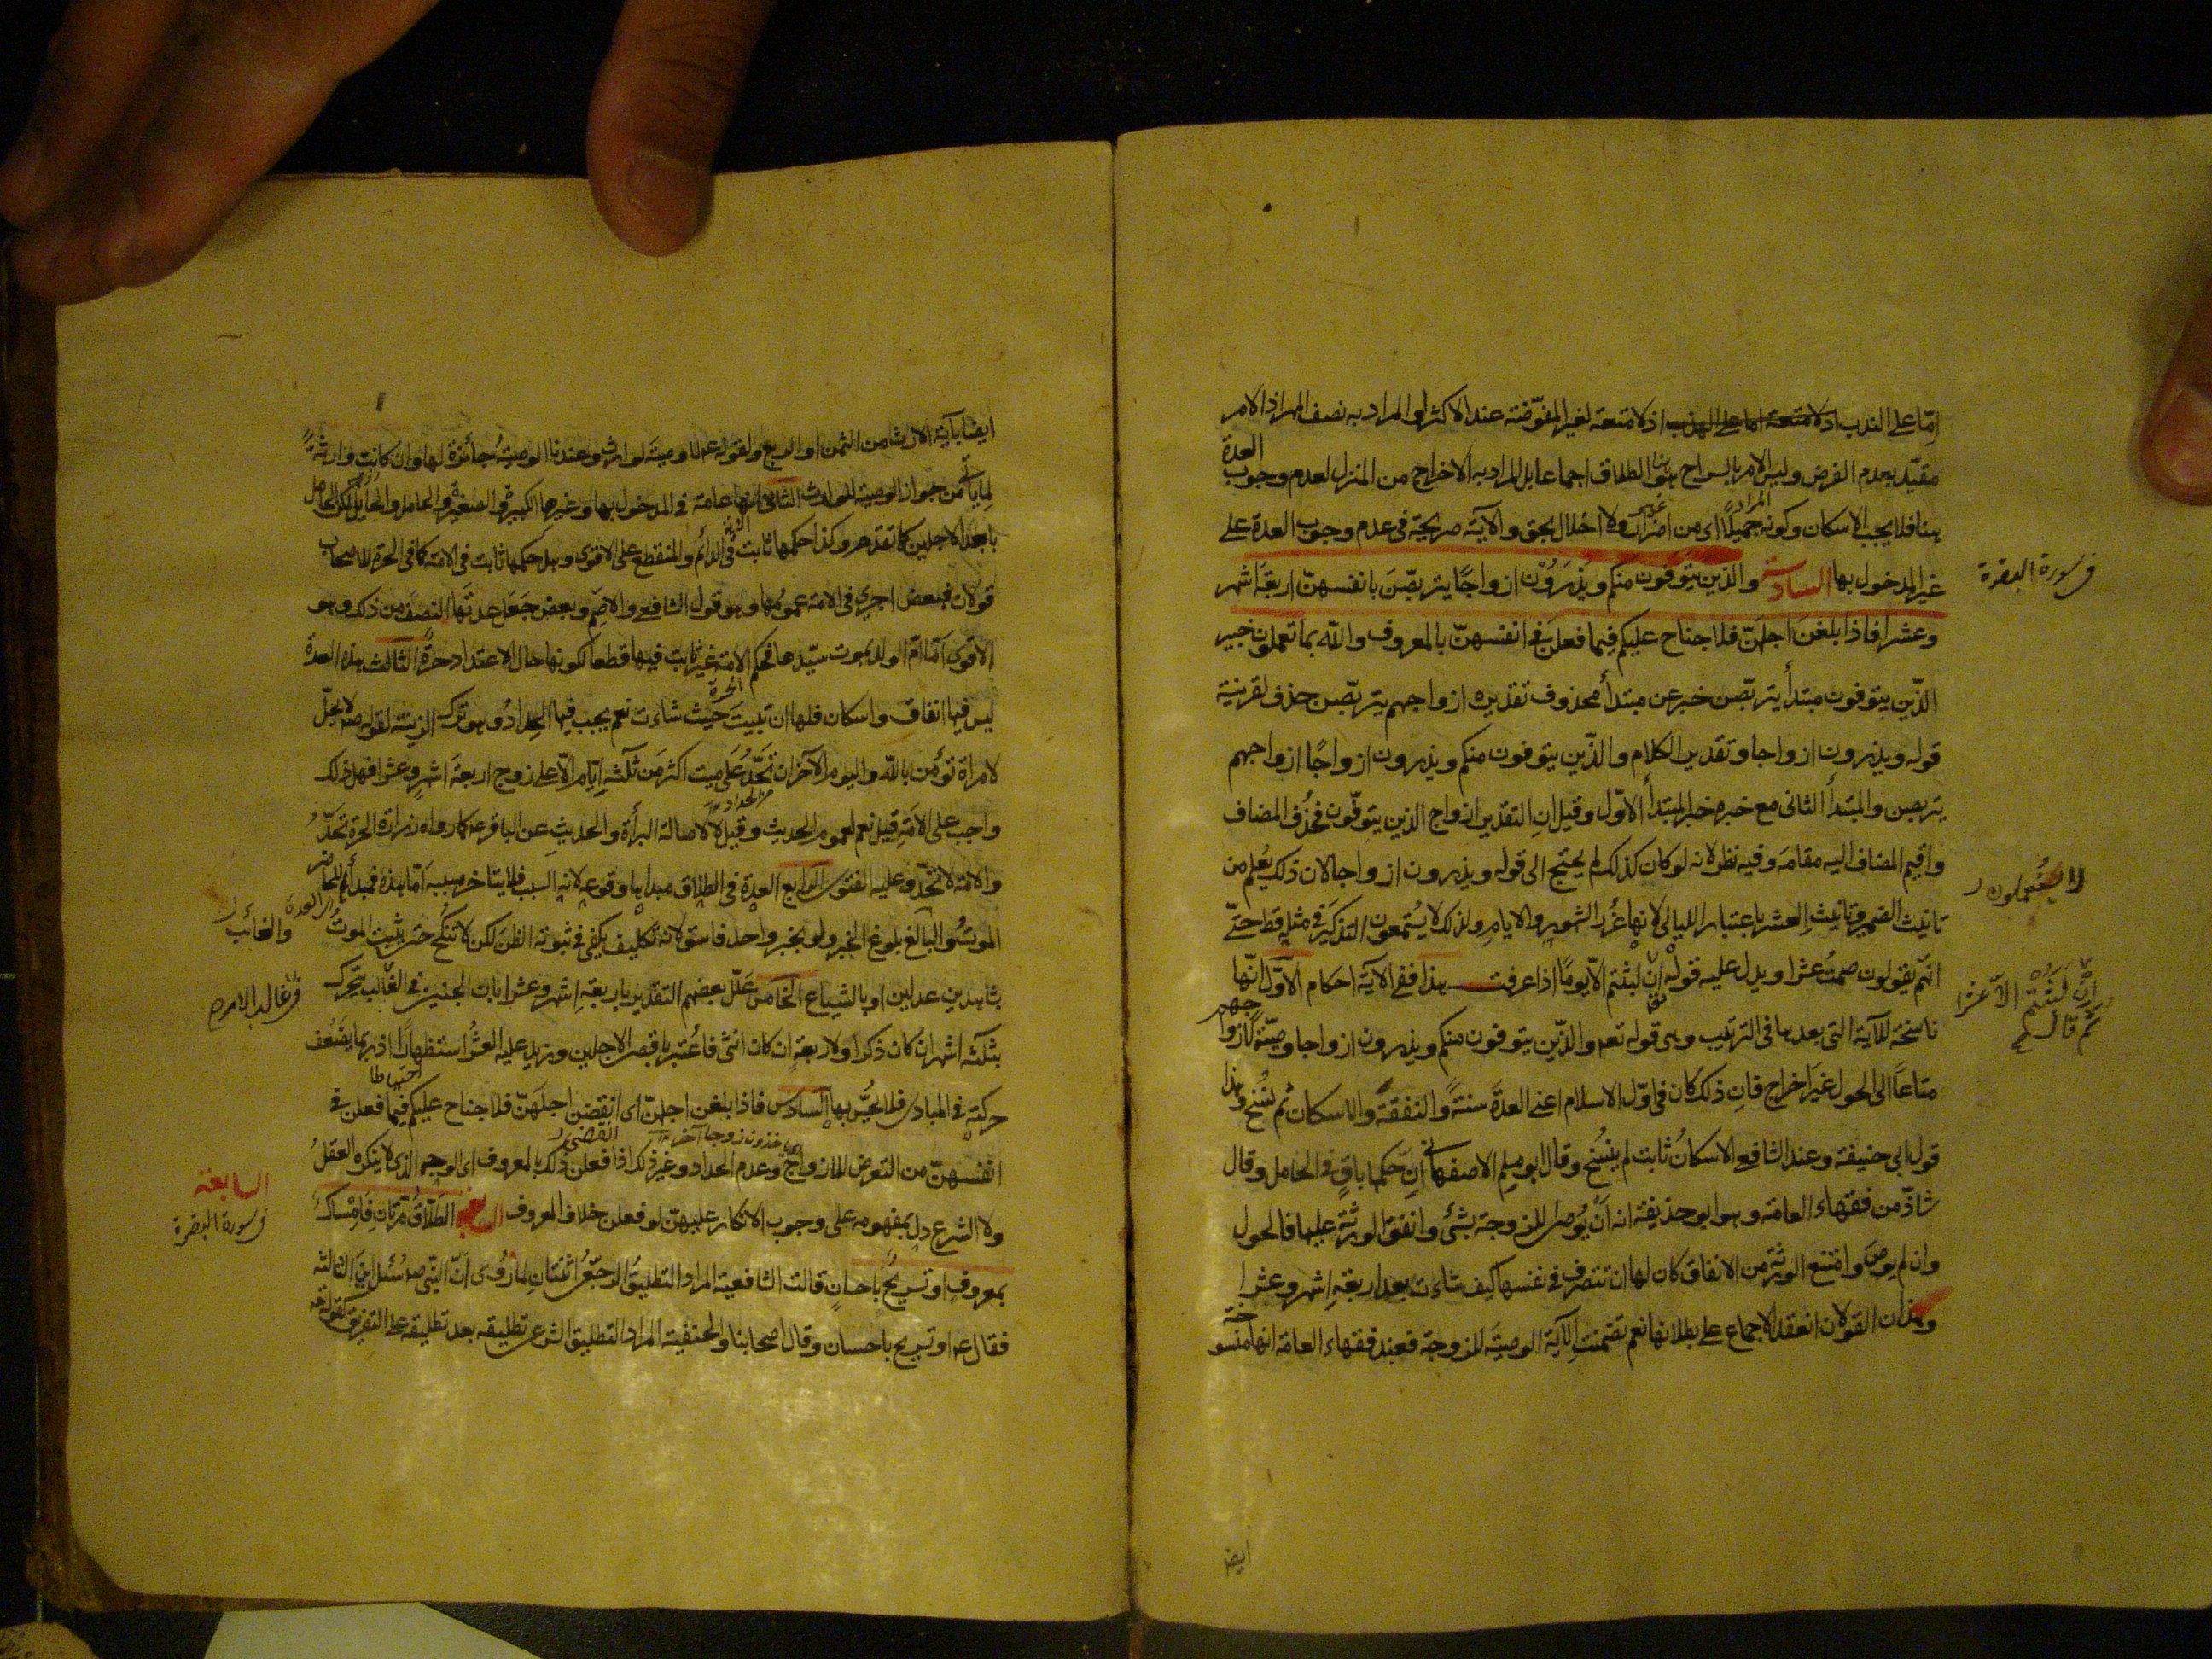 امّا على الندب اذ لا متعة اما على الهذب اذ لا متعة لغير المفوّضة عند الاكثر او المراد به نصف المهر اذ الامر
مقيّد بعدم الفرض وليس الامر بالسراج هو الطلاق اجماعا بل المراد به الاخراج من المنزل لعدم وجوب العدة
هنا فلا يجب الاسكان وكونه جميلاً المراد اى من غير اضرار ولا اخلال بحق والآية صريحة فى عدم وجوب العدة على
غير المدخول بها السادسة والذين يتوفون منكم ويذرون ازواجًا يتربّصن بانفسهنّ اربعة اشهر
فى سورة البقرة
وعشرا فاذا بلغن اجلهنّ فلا جناح عليكم فيما فعلن فى انفسهنّ بالمعروف والله بما تعملون خبير
الذّين يتوفون مبتدأ يتربّصن خبر عن مبتدأ محذوف تقديره ازواجهم يتربّصن حذف لقرينة
قوله ويذرون ازواجا وتقدير الكلام والذّين يتوفون منكم ويذرون ازواجًا ازواجهم
يتربصن والمبتدأ الثانى مع خبره خبر المبتدأ الاوّل وقيل ان التقدير ازواج الذين يتوفّون فحُذف المضاف
واقيم المضاف اليه مقامه وفيه نظر لانه لو كان كذلك لم يحتج الى قوله ويذرون ازواجا لان ذلك يعلم من
تانيث الضمير وتانيث العشر باعتبار الليالى لانها غُرر الشهور والايام ولذلك لا يستعملون التذكير فى مثله قط حتّى
لا يستعملون
انهم يقولون صمتُ عشرا ويدل عليه قوله ان لبثتم الّا يومًا اذا عرفت هذا ففى الآية احكام الاوّل انّها
ان لبثتم الا عشرا ثم قال
ناسخة للآية التى بعدها فى الترتيب وهى قوله تعه والذّين يتوفون منكم ويذرون ازواجا وصيّة لازواجهم
متاعًا الى الحول غير اخراج فان ذلك كان فى اوّل الاسلام اعنى العدّة سنةً والنفقة والاسكان ثم نُسخ وهذا
قول ابى حنيفة وعند الشافعى الاسكانُ ثابت لم ينسخ وقال ابو مسلم الاصفهانى انّ حكمها باقٍ فى الحامل وقال
شاذّ من فقهاء العامّة وهو ابو حذيفة انه ان يُوص للزوجة بشئ وانفق الورثة عليها فالحول
وان لم يوص وامتنع الورثة من الانفاق كان لها ان تتصرف فى نفسها كيف شاءت بعد اربعة اشهر وعشرا
وهذان القولان انعقد الاجماع على بطلانها نعم تضمنت الآية الوصيّة للزوجة فعند فقهاء العامة انها منسوخة
ايضا
ايضا بآية الارث من الثمن او الربع ولقوله عه لا وصيّة لوارث وعندنا الوصية جائزة لها وان كانت وارثةً
لما ياتى من جواز الوصية للوارث الثانى انها عامة فى المدخول بها وغيرها الكبيرة والصغيرة والحامل والحايل لكن الحامل
بابعد الاجلين كما تقدم وكذا حكمها ثابت فى الدائم والمنقطع على الاقوى وهل حكمها ثابت فى الامة كما فى الحرة للاصحاب
قولان فبعض اجرى فى الامة عمومها وهو قول الشافعى والاصم وبعض جعل عدتها النصف من ذلك وهو
الاقوى امّا امّ الولد بموت سيّدها فحكم الامة غير ثابت فيها قطعا لكونها حال الاعتداد حرةً الثالث هذه العدة
ليس فيها انفاق واسكان فلها ان تبيت حيث شاءت نعم يجب فيها الحداد وهو ترك الزينة لقوله صه لا يحلّ
لامراة تؤمن بالله واليوم الآخر ان تحدّ على ميت اكثر من ثلثة ايّام الّا على زوج اربعة اشهر وعشرا فهل ذلك
واجب على الامة قيل نعم لعموم الحديث وقيل لا لاصالة البرأة والحديث عن الباقر عه كما رواه زرارة الحرة تحدّ
والامة لا تحدّ وعليه الفتوى الرابع العدة فى الطلاق مبدأها وقوعه لانه السبب فلا يتاخر مسببه امّا هذه فمبدأها للحاضر
الموت والبالغ بلوغ الخبر ولو بخبر واحد فاسق لانه تكليف يكفى فى ثبوته الظن لكن لا تنكح حتى يثبت الموت
والغائب
بشاهدين عدلين او بالشياع الخامس علّل بعضهم التقدير باربعة اشهر وعشرا بان الجنين فى الغالب يتحرك
فى غالب الامر
بثلثة اشهر ان كان ذكرا ولاربعة ان كان انثى فاعتبر باقصى الاجلين وزيد عليه العشر استظهارًا اذ ربما يضعف
حركته فى المبادى فلا يحسّ بها السادس فاذا بلغن اجلهنّ اى انقضى اجلهنّ فلا جناح عليكم فيما فعلن فى
احتياطا
انفسهنّ من التعرض للازواج وعدم الحداد وغير ذلك اذا فعلن ذلك بالمعروف اى الوجه الذى لا ينكره العقل
ولا الشرع دل بمفهومه على وجوب الانكار عليهنّ لو فعلن خلاف المعروف الطلاق مرّتان فامساك
السابعة
فى سورة البقرة
بمعروف او تسريح باحسان قالت الشافعية المراد التطليق الرجعى اثنتان لما روى انّ النبى صه سُئل اين الثالثة
فقال عه او تسريح باحسان وقال اصحابنا والحنفية المراد التطليق الشرعى تطليقه بعد تطليقه على التفريق لقوله